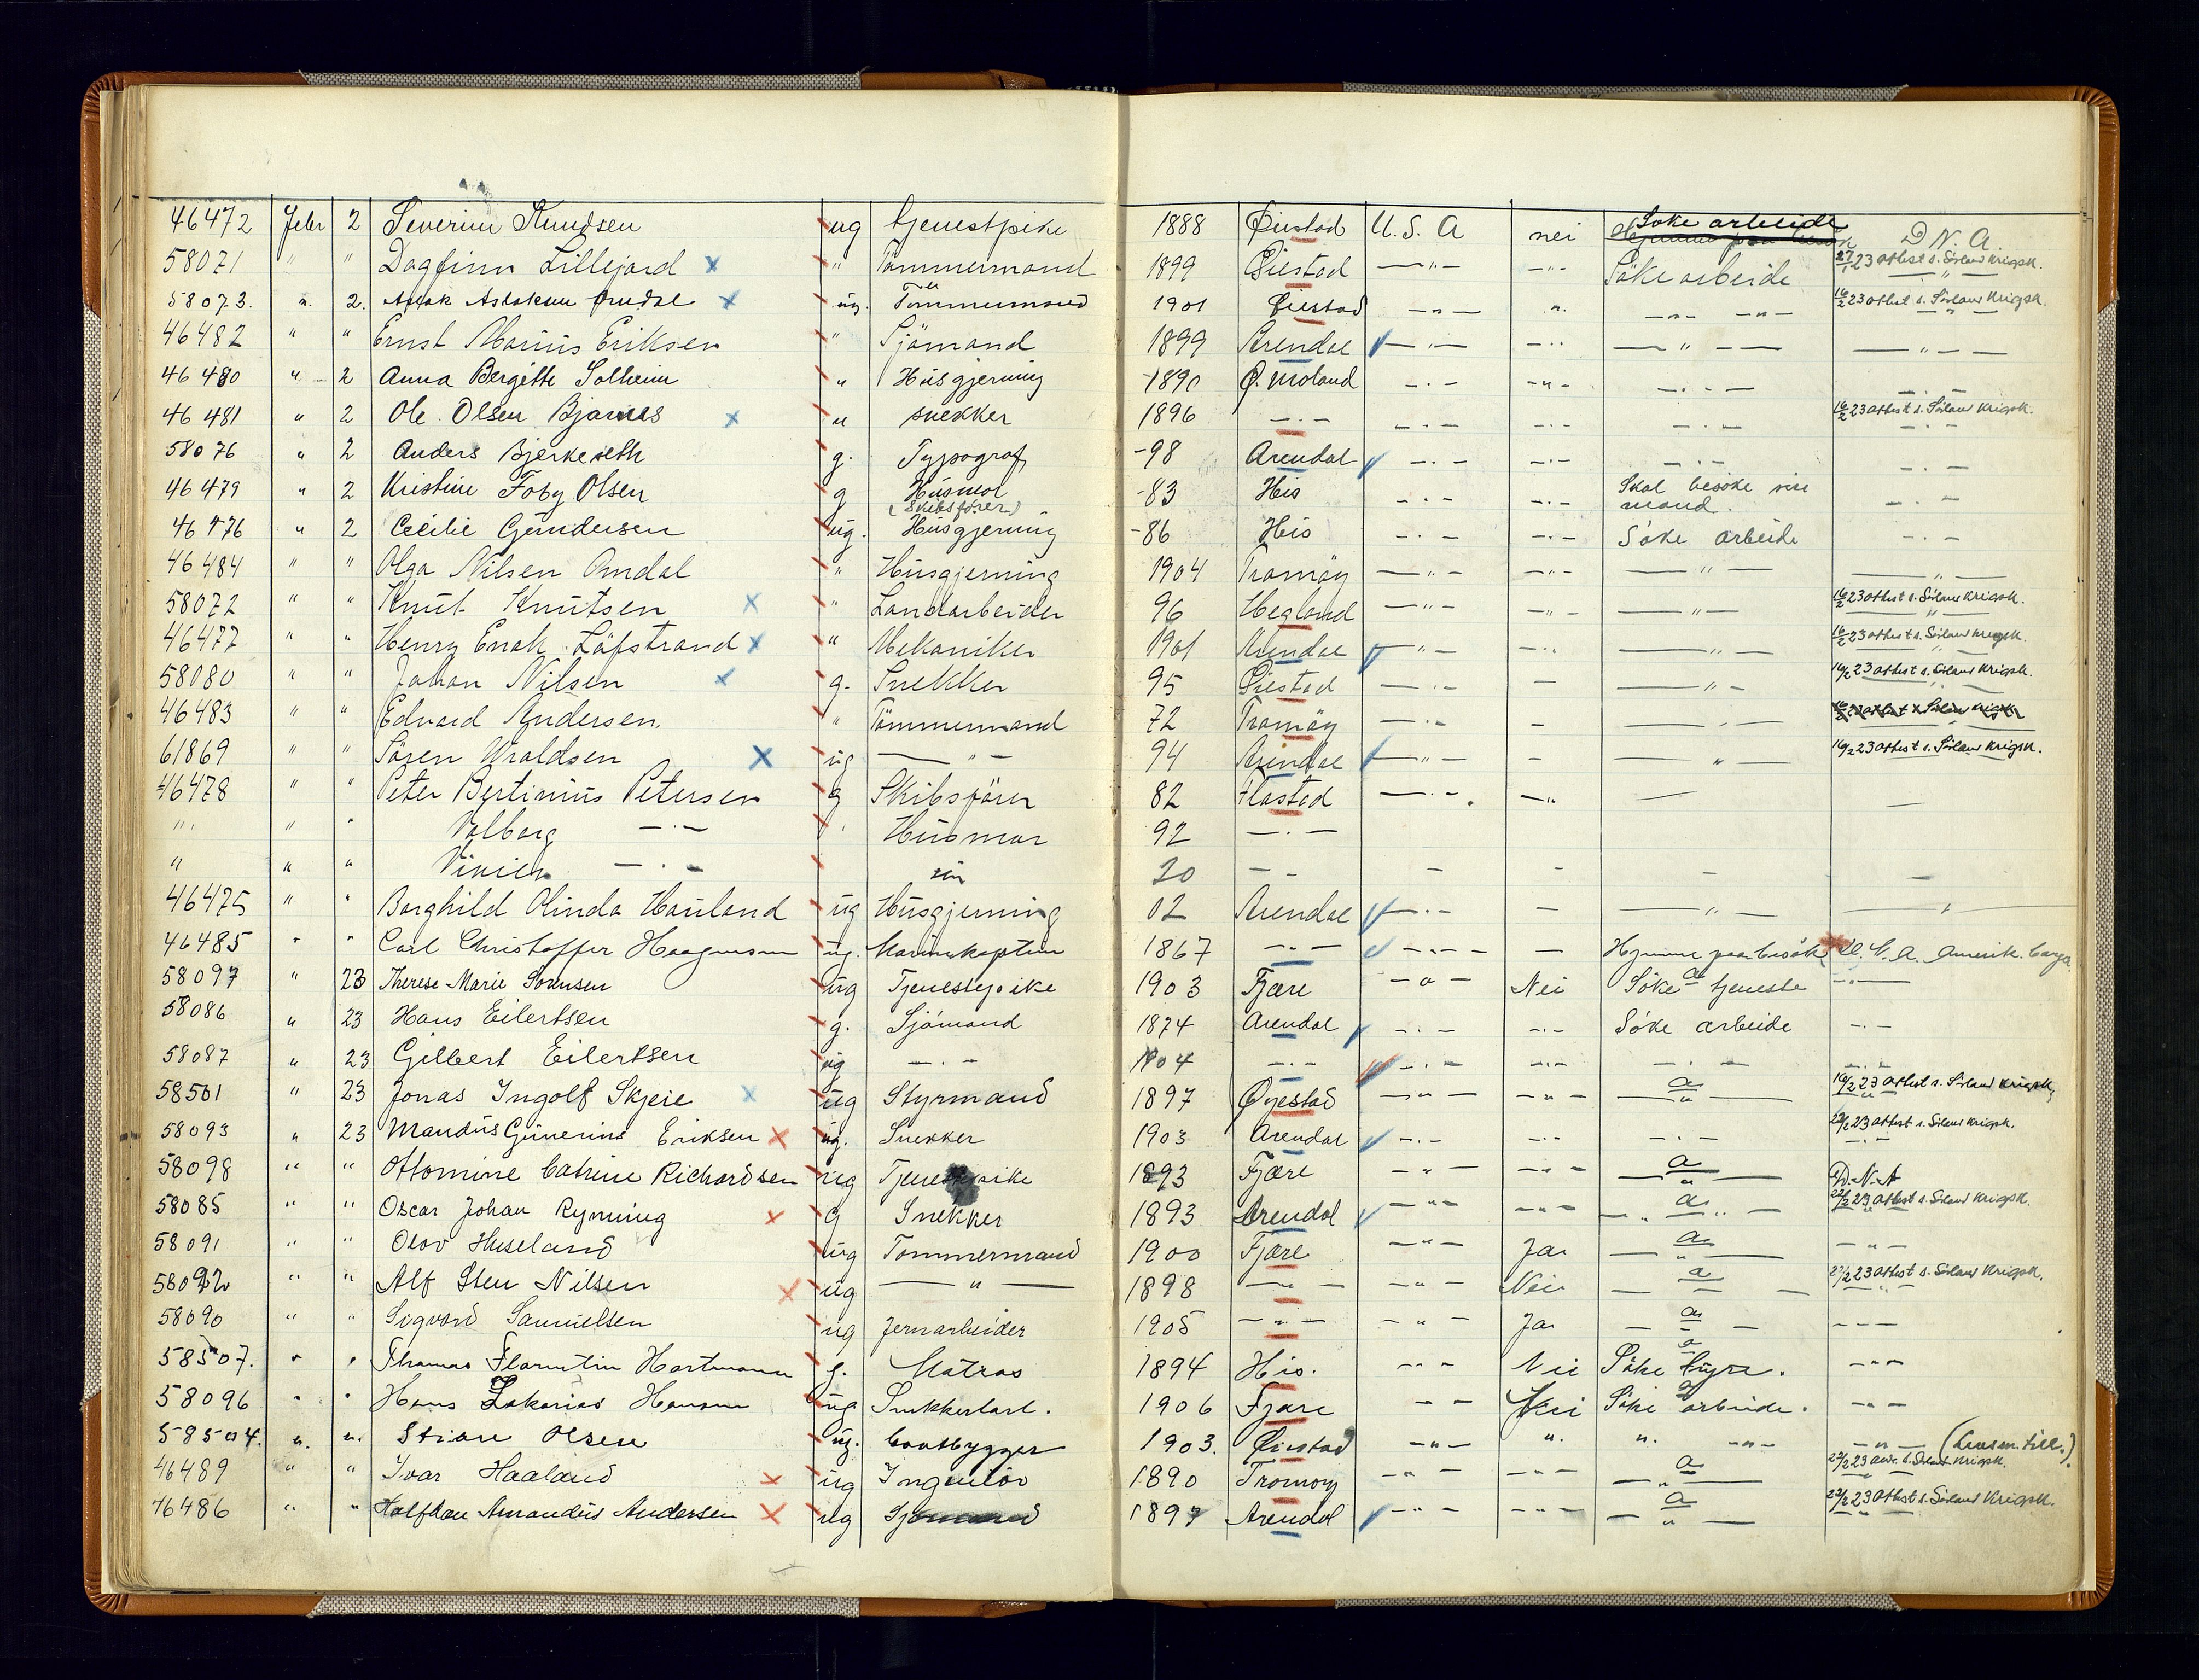 46472 Febr 2 Severine Knudsen ug tjenestpike 1888 Øiestad U.S.A nei Søke arbeide D.N.A.
58071 " " Dagfinn Lillejord x " Tömmermand 1899 Øiestad —"— —"— Söke arbeide 27/1 23 attest s. Sörland Krigsk.
58073. " 2. Aslak Aslaksen x ug. Tömmermand 1901 Øiestad —"— ". —"— —"— 16/2 23 attest s. Sörland Krigsk.
46482 " " Ernst Marius Eriksen " Sjömand 1899 Arendal —"— —"— —"— —"—
46480 " 2 Anna Bergitte Solheim " Husgjerning 1890 Ø. Moland —"— —"— —"— —"—
46481 " 2 Ole Olsen Bjarnes x " snekker 1896 —"— —"— —"— —"— 16/2 23 attest s. Sörland Krigsk.
58076 " 2 Anders Bjerkeseth g. Typograf -98 Arendal —"— —"— —"— —"—
46479 " 2 Kristine Foby Olsen g Husmor (Skibsförer) -83 His —"— —"— Skal besöke sin mand. —"—
46476 " 2 Cecilie Gundersen ug. Husgjerning -86 His —"— —"— Söke arbeide —"—
46484 " " Olga Nilsen Omdal " Husgjerning 1904 Tromöy —"— —"— —"— —"—
58072 " " Knut Knutsen x " Landarbeider 96 Hegland —"— —"— —"— 16/2 23 attest s. Sörland Krigsk.
46477 " " Henry Enok Löfstrand x " Mekaniker 1901 Arendal —"— —"— —"— 16/2 23 attest s. Sörland Krigsk.
58080 " " Johan Nilsen x g. Snekker 95 Øiestad —"— — —"— 16/2 23 attest s. Sörland Krigsk.
46483 " " Edvard Andersen " Tömmermand 72 Tromöy —"— — —"—
61869 " " Sören Uroldsen x ug —"— 94 Arendal —"— — —"— 16/2 23 attest s. Sörland Krigsk.
46478 " " Peter Bertinius Petersen g Skibsförer 82 Flostad —"— —" — —
" " " Valborg —"— " Husmor 92 —"—
" " " —"— sön 20 — — — — — —
46475 " " Borghild Olinda Hauland ug Husgjerning 02 Arendal —"— — —"— —"—
46485 " " Carl Christoffer ug. Marinekaptein 1867 —"— —"— — Hjemme paa besök U.S.A. Amerik. Cargo
58097 " 23 Therese Marie Sörensen ug Tjenestepike 1903 Fjære —"— Nei Söke a tjeneste —"—
58086 " 23 Hans Eilertsen g. Sjömand 1874 Arendal —"— —"— Söke arbeide —"—
58087 " 23 Gilbert Eilertsen ug —"— 1904 —"— —"— —"— —"— —"—
58501 " 23 Jonas Ingolf Skjeie x ug Styrmand 1897 Øyestad —"— —"— a —"— 16/2 23 attest s. Sörland Krigsk.
58093 " 23 Mandius Gunerius Eriksen x ug. Snekker 1903 Arendal —"— —"— —"— 23/2 23 attest s. Sörland Krigsk.
58098 " " Ottomine Catrine Richardsen ug Tjenestepike 1893 Fjære —"— —"— a —"— D.N.A
58085 " " Oscar Johan Rynning x g Snekker 1893 Arendal —"— —"— a —"— 22/2 23 attest s. Sörland Krigsk.
58091 " " Olav Huseland ug Tömmermand 1900 Fjære —"— Ja a —"— —"—
58092 " " Alf Sten Nilsen x ug —"— 1898 —"— —"— Nei a — 27/2 23 attest s. Sörland Krigsk.
58090 " " Sigvard Samuelsen ug Jernarbeider 1905 —"— —"— Ja a — —"—
58507. " " Thomas Florentin Hartmann g. Matros 1894 His. —"— Nei Söke a hyre. —"—
58096 " " Hans Zakarias Hansen ug Snekkerlærl. 1906 Fjære —"— Nei Söke a arbeide. —"—
58504. " ". Stian Olsen ug. baatbygger 1903. Øiestad —"— ". ". —"— —"—
46489 " " Ivar Haaland x ug Ingeniör 1890 Tromöy —"— —"— a —"— 22/2 23 s. Sörland Krigsk.
46486 " " Halfdan Amandus Andersen x ug Sjömand 1897 Arendal —"— —"— a —"— 23/2 23 attest s. Sörland Krigsk.